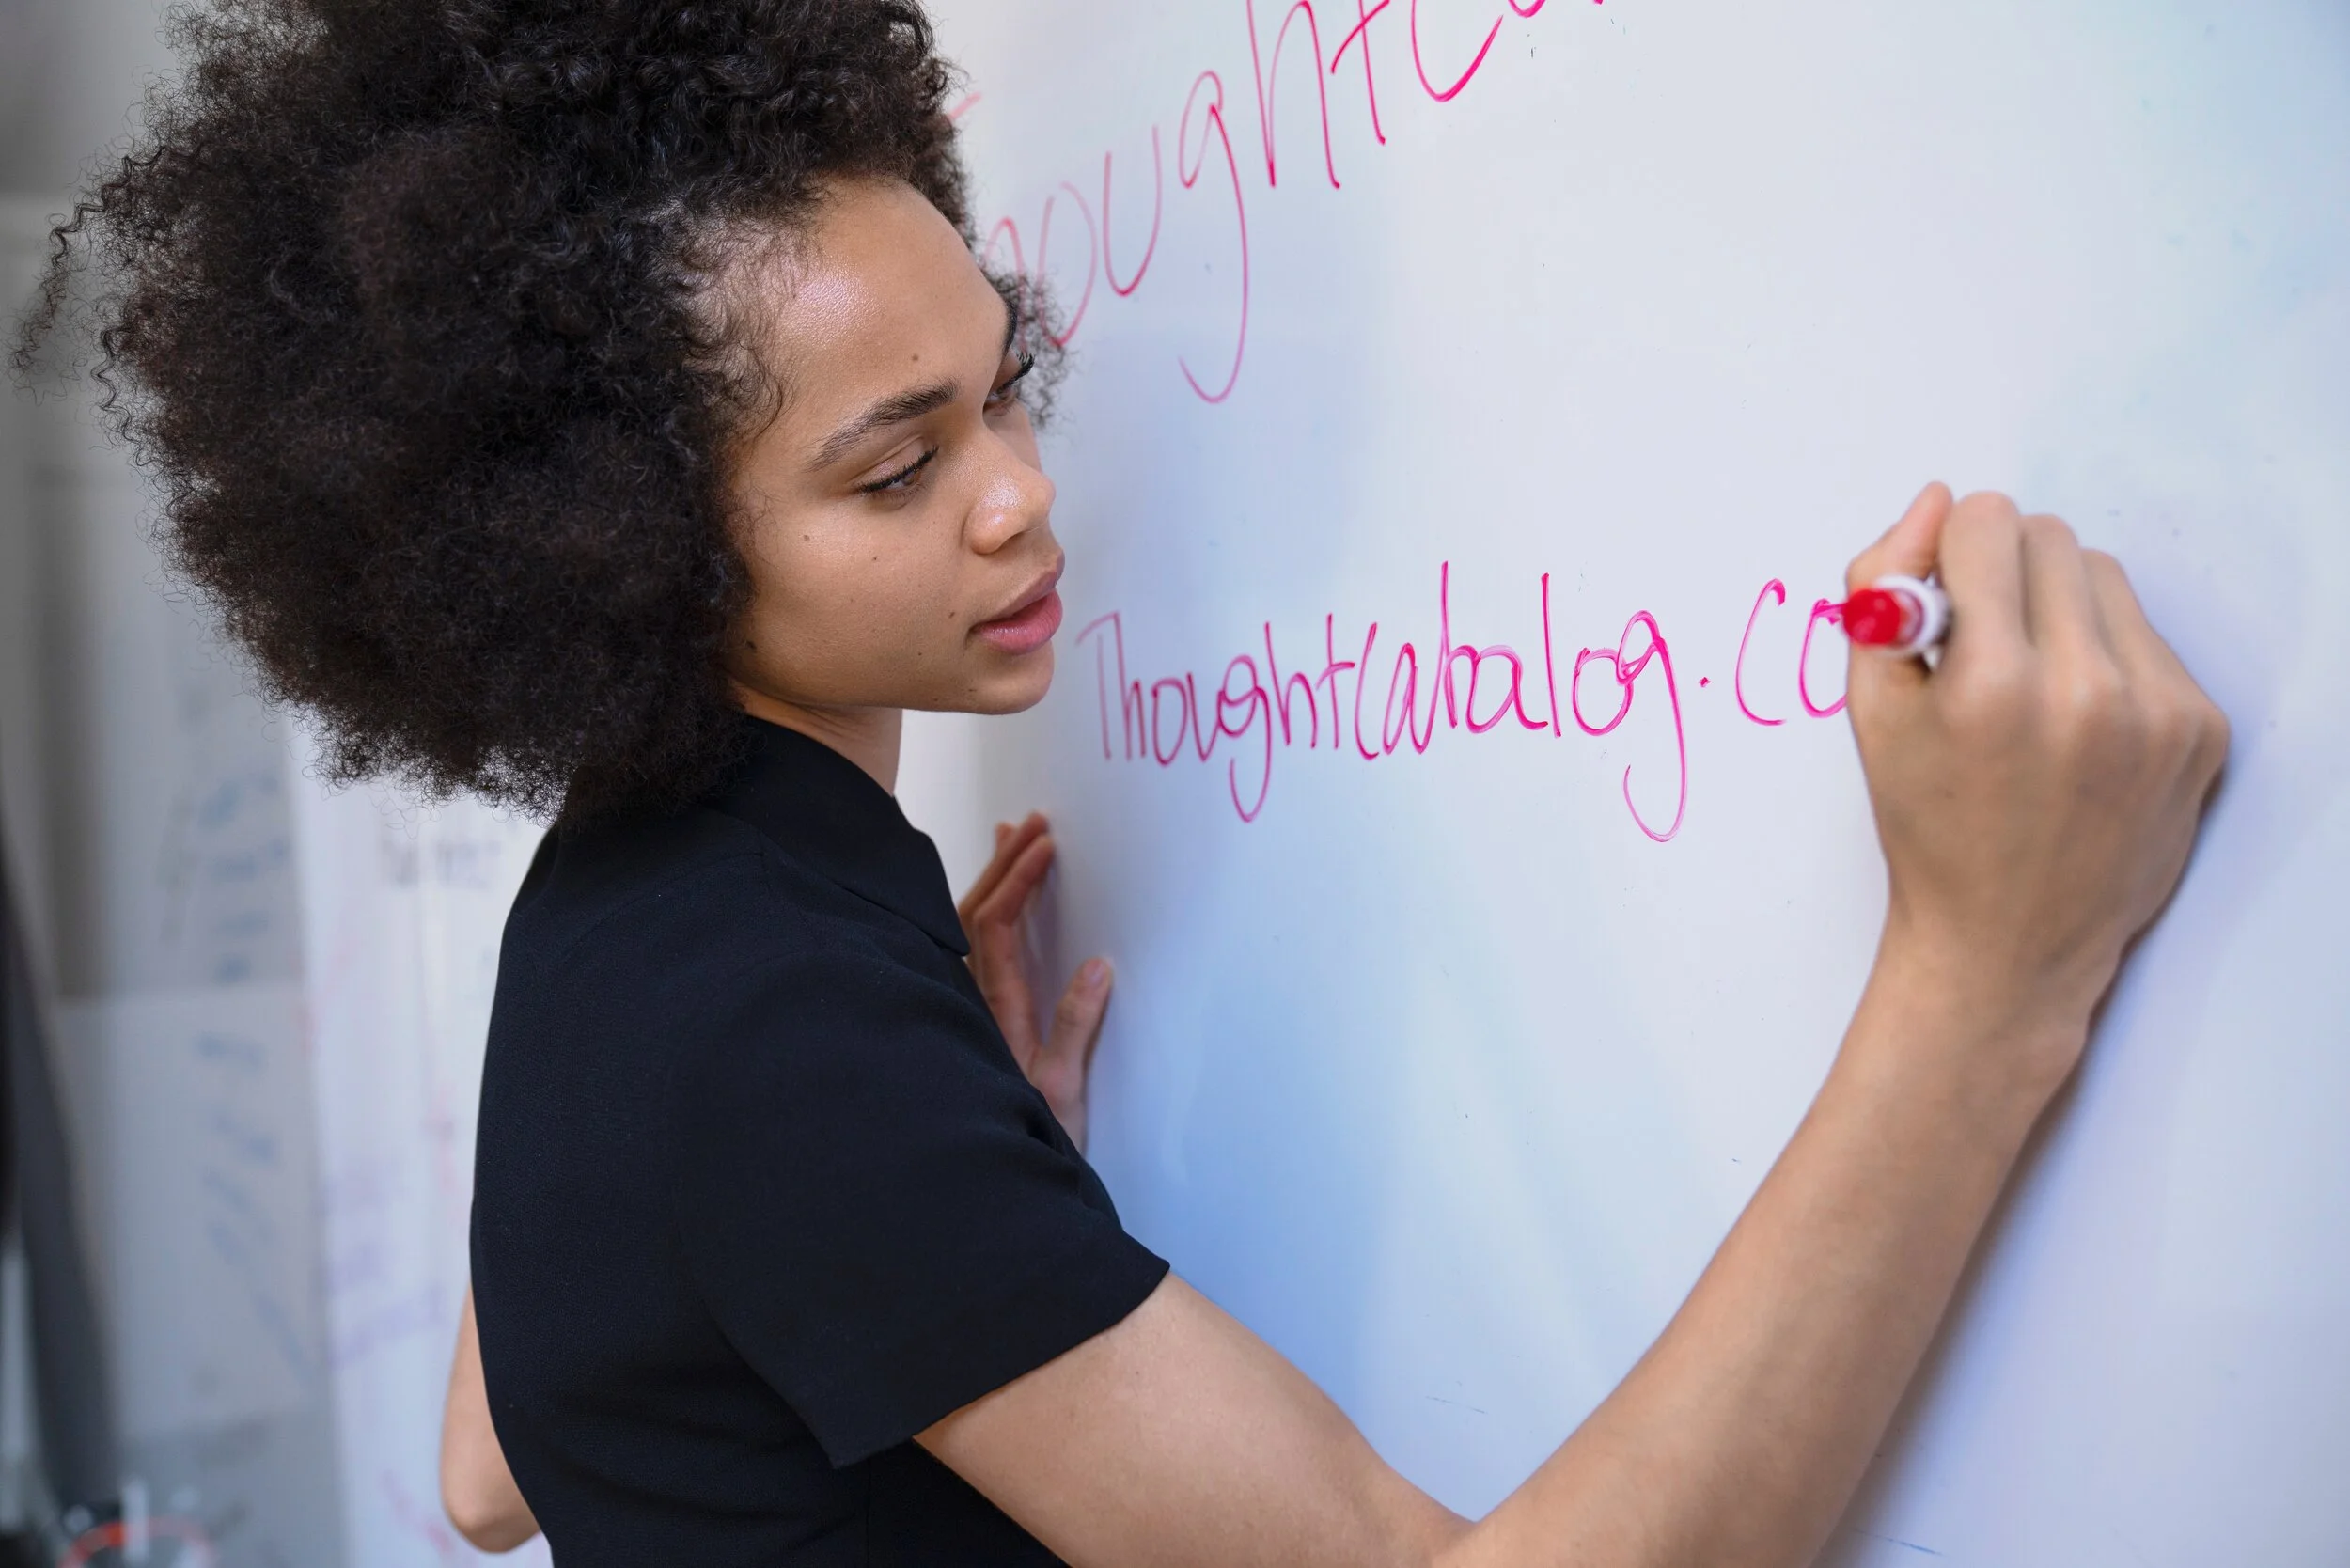 oughtC
Thoughtcatalog.co